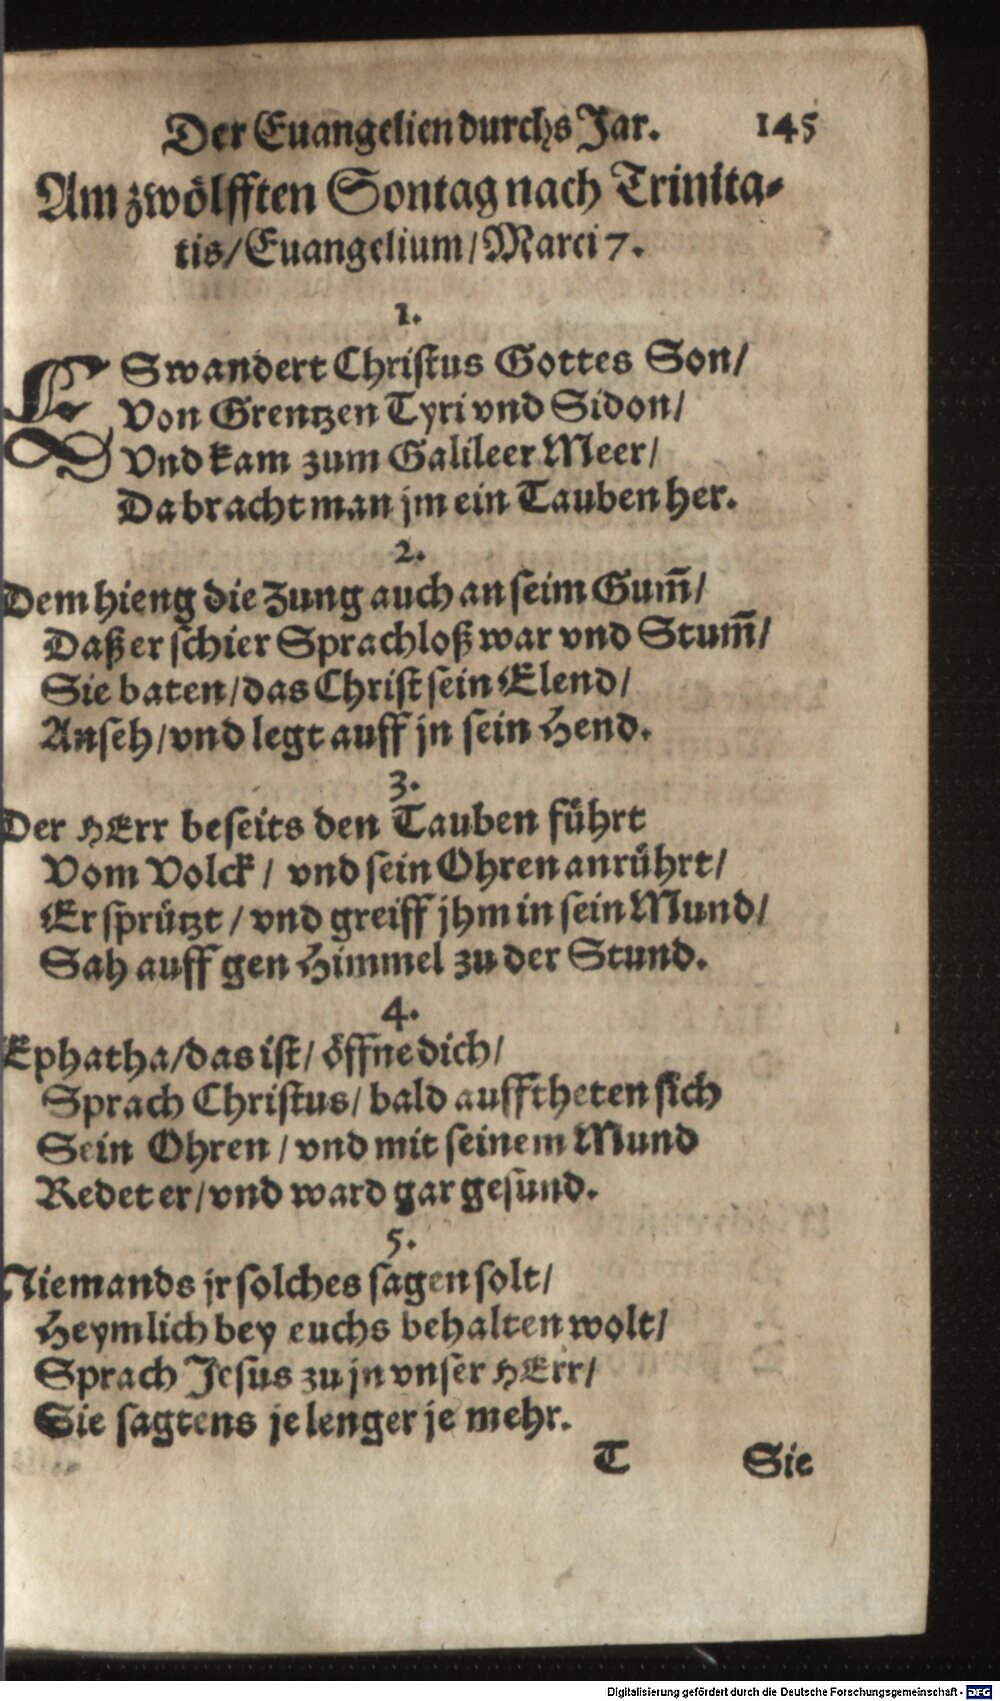 Der Euangelien durchs Jar. 145
Am zwölfften Sontag nach Trinita-
tis/ Euangelium/ Marci 7.
1.
ES wandert Christus Gottes Son/
Von Grentzen Tyri vnd Sidon/
Vnd kam zum Galileer Meer/
Da bracht man jm ein Tauben her.
2.
Dem hieng die Zung auch an seim Gum̅/
Daß er schier Sprachloß war vnd Stum̅/
Sie baten/ das Christ sein Elend/
Anseh/ vnd legt auff jn sein Hend.
3.
Der HErr beseits den Tauben führt
Vom Volck/ vnd sein Ohren anrührt/
Er sprützt/ vnd greiff jhm in sein Mund/
Sah auff gen Himmel zu der Stund.
4.
Ephatha/ das ist/ öffne dich/
Sprach Christus/ bald aufftheten sich
Sein Ohren/ vnd mit seinem Mund
Redet er/ vnd ward gar gesund.
5.
Niemands jr solches sagen solt/
Heymlich bey euchs behalten wolt/
Sprach Jesus zu jn vnser HErr/
Sie sagtens je lenger je mehr.
T Sie
Digitalisierung gefördert durch die Deutsche Forschungsgemeinschaft - DFG